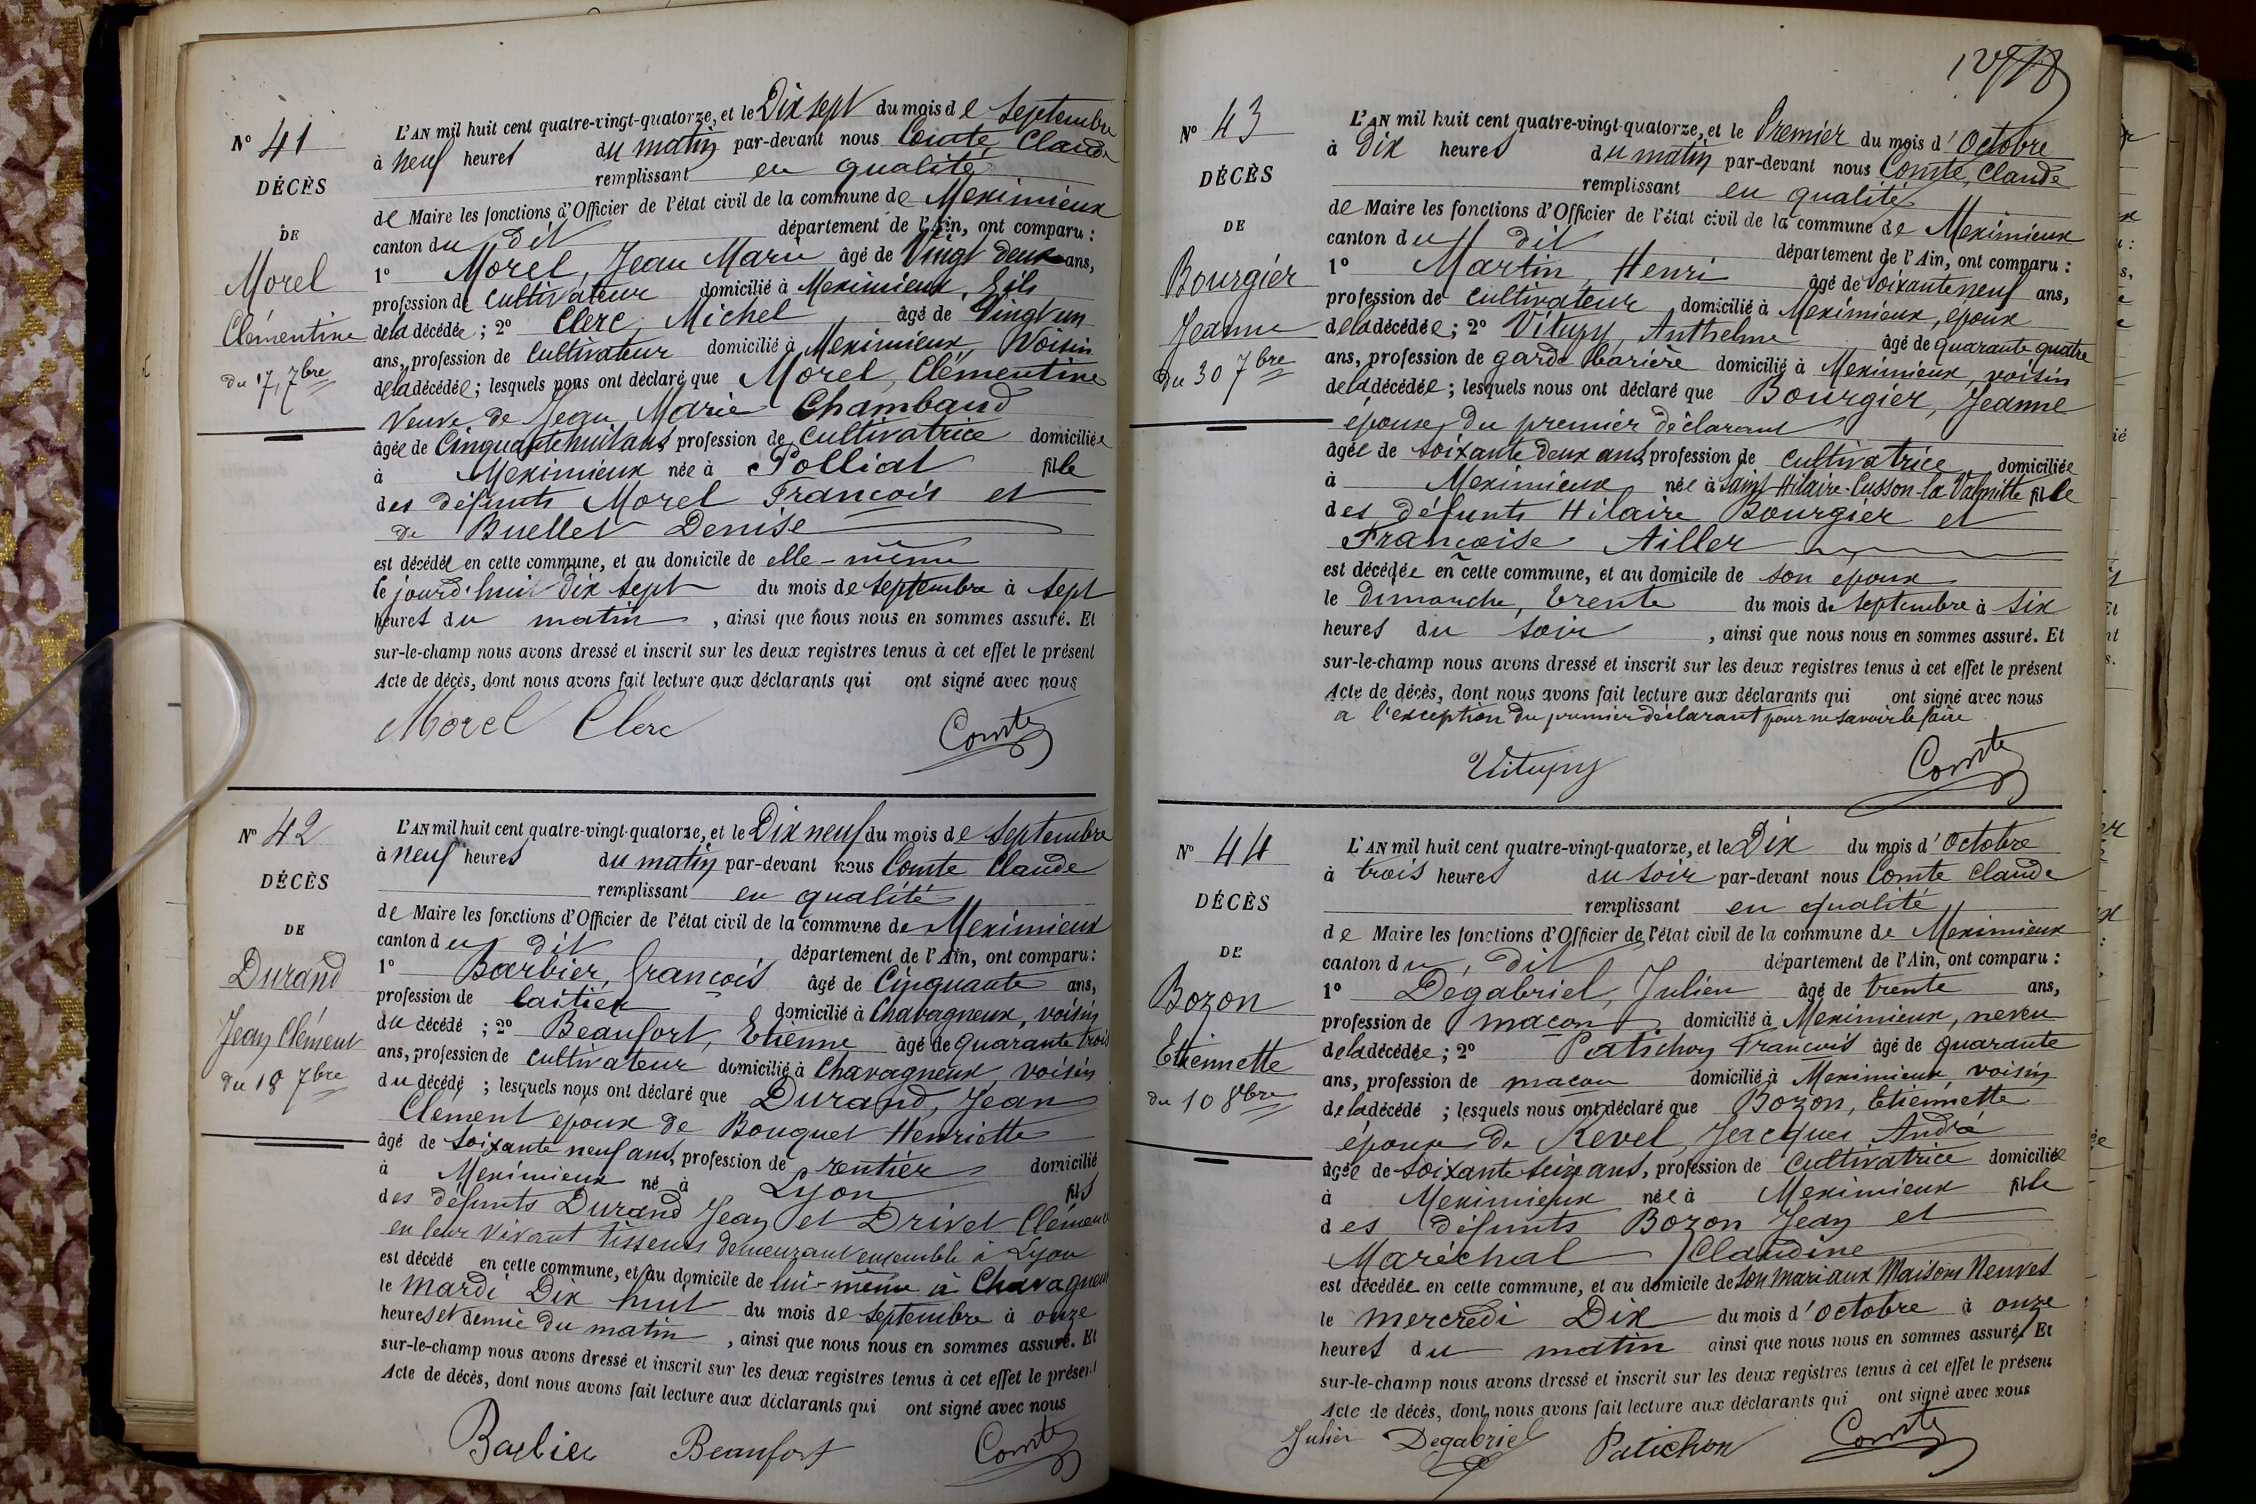 N° 41
DÉCÈS
DE
Morel
Clémentine
du 17, 7bre
L'AN mil huit cent quatre-vingt-quatorze, et le Dix sept du mois de Septembre
à neuf heures du matin par-devant nous Comte, Claude
remplissant en qualité
de Maire les fonctions d'Officier de l'état civil de la commune de Meximieux
canton du dit département de l'Ain, ont comparu :
1° Morel, Jean Marie âgé de Vingt deux ans,
profession de cultivateur domicilié à Meximieux, fils
de la décédée ; 2° Clerc, Michel âgé de Vingt un
ans, profession de cultivateur domicilié à Meximieux, Voisin
de la décédée ; lesquels nous ont déclaré que Morel, Clémentine
Veuve de Jean Marie Chambaud
âgée de Cinquante huit ans, profession de cultivatrice domiciliée
à Meximieux née à Polliat fille
des défunts Morel François et
de Buellet Denise
est décédée en cette commune, et au domicile de elle-même
le jourd'hui dix sept du mois de septembre à sept
heures du matin , ainsi que nous nous en sommes assuré. Et
sur-le-champ nous avons dressé et inscrit sur les deux registres tenus à cet effet le présent
Acte de décès, dont nous avons fait lecture aux déclarants qui ont signé avec nous
Morel Clerc Comte
N° 42
DÉCÈS
DE
Durand
Jean Clément
du 18 7bre
L'AN mil huit cent quatre-vingt-quatorze, et le Dix neuf du mois de Septembre
à neuf heures du matin par-devant nous Comte Claude
remplissant en qualité
de Maire les fonctions d'Officier de l'état civil de la commune de Meximieux
canton du dit département de l'Ain, ont comparu :
1° Barbier, François âgé de Cinquante ans,
profession de laitier domicilié à Chavagneux, voisin
du décédé ; 2° Beaufort, Etienne âgé de quarante trois
ans, profession de cultivateur domicilié à Chavagneux, voisin
du décédé ; lesquels nous ont déclaré que Durand, Jean
Clément époux de Bouquet Henriette
âgé de soixante neuf ans, profession de rentier domicilié
à Meximieux né à Lyon fils
des défunts Durand Jean et Drivet Clémence
en leur vivant tisseurs demeurant ensemble à Lyon
est décédé en cette commune, et au domicile de lui-même à Chavagneux
le mardi Dix huit du mois de septembre à onze
heures et demie du matin , ainsi que nous nous en sommes assuré. Et
sur-le-champ nous avons dressé et inscrit sur les deux registres tenus à cet effet le présent
Acte de décès, dont nous avons fait lecture aux déclarants qui ont signé avec nous
Barbier Beaufort Comte
N° 43
DÉCÈS
DE
Bourgier
Jeanne
du 30 7bre
L'AN mil huit cent quatre-vingt-quatorze, et le Premier du mois d'Octobre
à Dix heures du matin par-devant nous Comte, Claude
remplissant en qualité
de Maire les fonctions d'Officier de l'état civil de la commune de Meximieux
canton du dit département de l'Ain, ont comparu :
1° Martin, Henri âgé de soixante neuf ans,
profession de cultivateur domicilié à Meximieux, époux
de la décédée ; 2° Vitupy, Anthelme âgé de quarante quatre
ans, profession de garde barière domicilié à Meximieux, voisin
de la décédée ; lesquels nous ont déclaré que Bourgier, Jeanne
épouse du premier déclarant
âgée de soixante deux ans, profession de cultivatrice domiciliée
à Meximieux née à Saint Hilaire-Cusson-la Valmitte fille
des défunts Hilaire Bourgier et
Françoise Ailler
est décédée en cette commune, et au domicile de son époux
le dimanche, trente du mois de septembre à six
heures du soir , ainsi que nous nous en sommes assuré. Et
sur-le-champ nous avons dressé et inscrit sur les deux registres tenus à cet effet le présent
Acte de décès, dont nous avons fait lecture aux déclarants qui ont signé avec nous
a l'exception du premier déclarant pour ne savoir le faire
Vitupy Comte
N° 44
DÉCÈS
DE
Bozon
Etiennette
du 10 8bre
L'AN mil huit cent quatre-vingt-quatorze, et le Dix du mois d'Octobre
à trois heures du soir par-devant nous Comte Claude
remplissant en qualité
de Maire les fonctions d'Officier de l'état civil de la commune de Meximieux
canton du dit département de l'Ain, ont comparu :
1° Degabriel, Julien âgé de trente ans,
profession de maçon domicilié à Meximieux, neveu
de la décédée ; 2° Patichon François âgé de quarante
ans, profession de maçon domicilié à Meximieux, voisin
de la décédé ; lesquels nous ont déclaré que Bozon, Etiennette
épouse de Revel, Jacques André
âgée de soixante seize ans, profession de cultivatrice domiciliée
à Meximieux née à Meximieux fille
des défunts Bozon Jean et
Maréchal Claudine
est décédée en cette commune, et au domicile de son mari aux Maisons Neuves
le mercredi Dix du mois d'octobre à onze
heures du matin ainsi que nous nous en sommes assuré. Et
sur-le-champ nous avons dressé et inscrit sur les deux registres tenus à cet effet le présent
Acte de décès, dont nous avons fait lecture aux déclarants qui ont signé avec nous
Julien Degabriel Patichon Comte